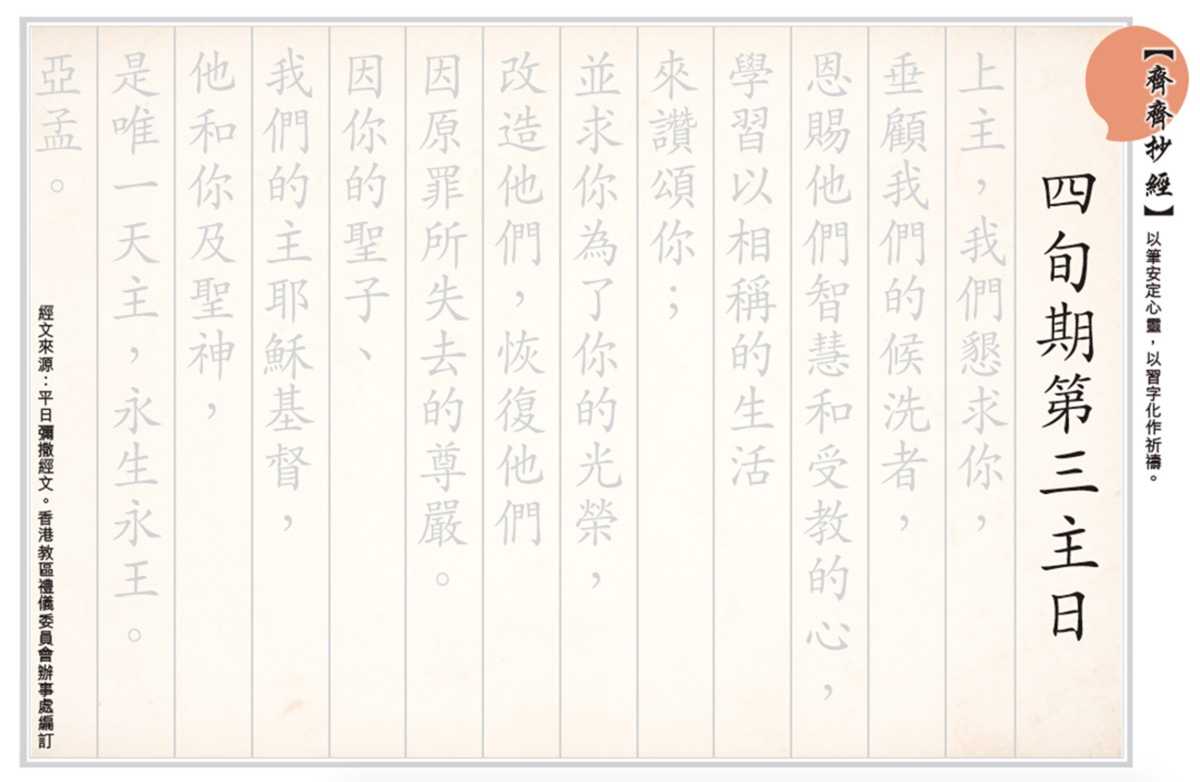 【齊齊抄經】以筆安定心靈，以習字化作祈禱。
四旬期第三主日
上主，我們懇求你，
垂顧我們的候洗者，
恩賜他們智慧和受教的心，
學習以相稱的生活
來讚頌你；
並求你為了你的光榮，
改造他們，恢復他們
因原罪所失去的尊嚴。
因你的聖子、
我們的主耶穌基督，
他和你及聖神，
是唯一天主，永生永王。
亞孟。
經文來源：平日彌撒經文。香港教區禮儀委員會辦事處編訂